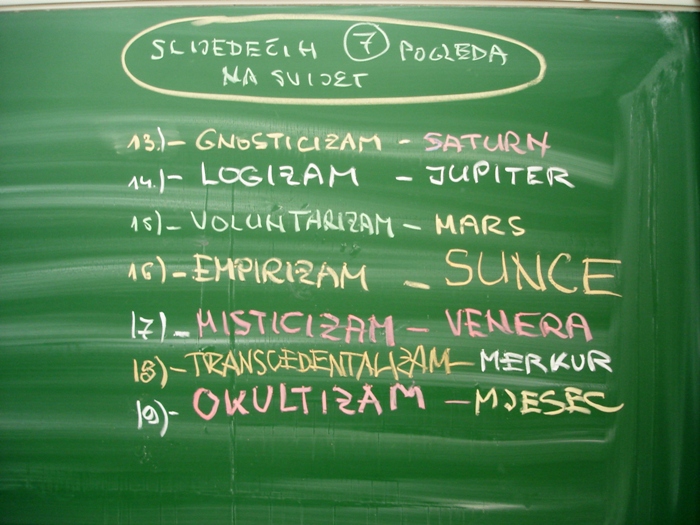 SLIJEDEĆIH 7 POGLEDA
NA SVIJET
13.)- GNOSTICIZAM - SATURN
14.)- LOGIZAM - JUPITER
15)- VOLUNTARIZAM - MARS
16)- EMPIRIZAM - SUNCE
17)- MISTICIZAM - VENERA
18)- TRANSCEDENTALIZAM - MERKUR
19)- OKULTIZAM - MJESEC